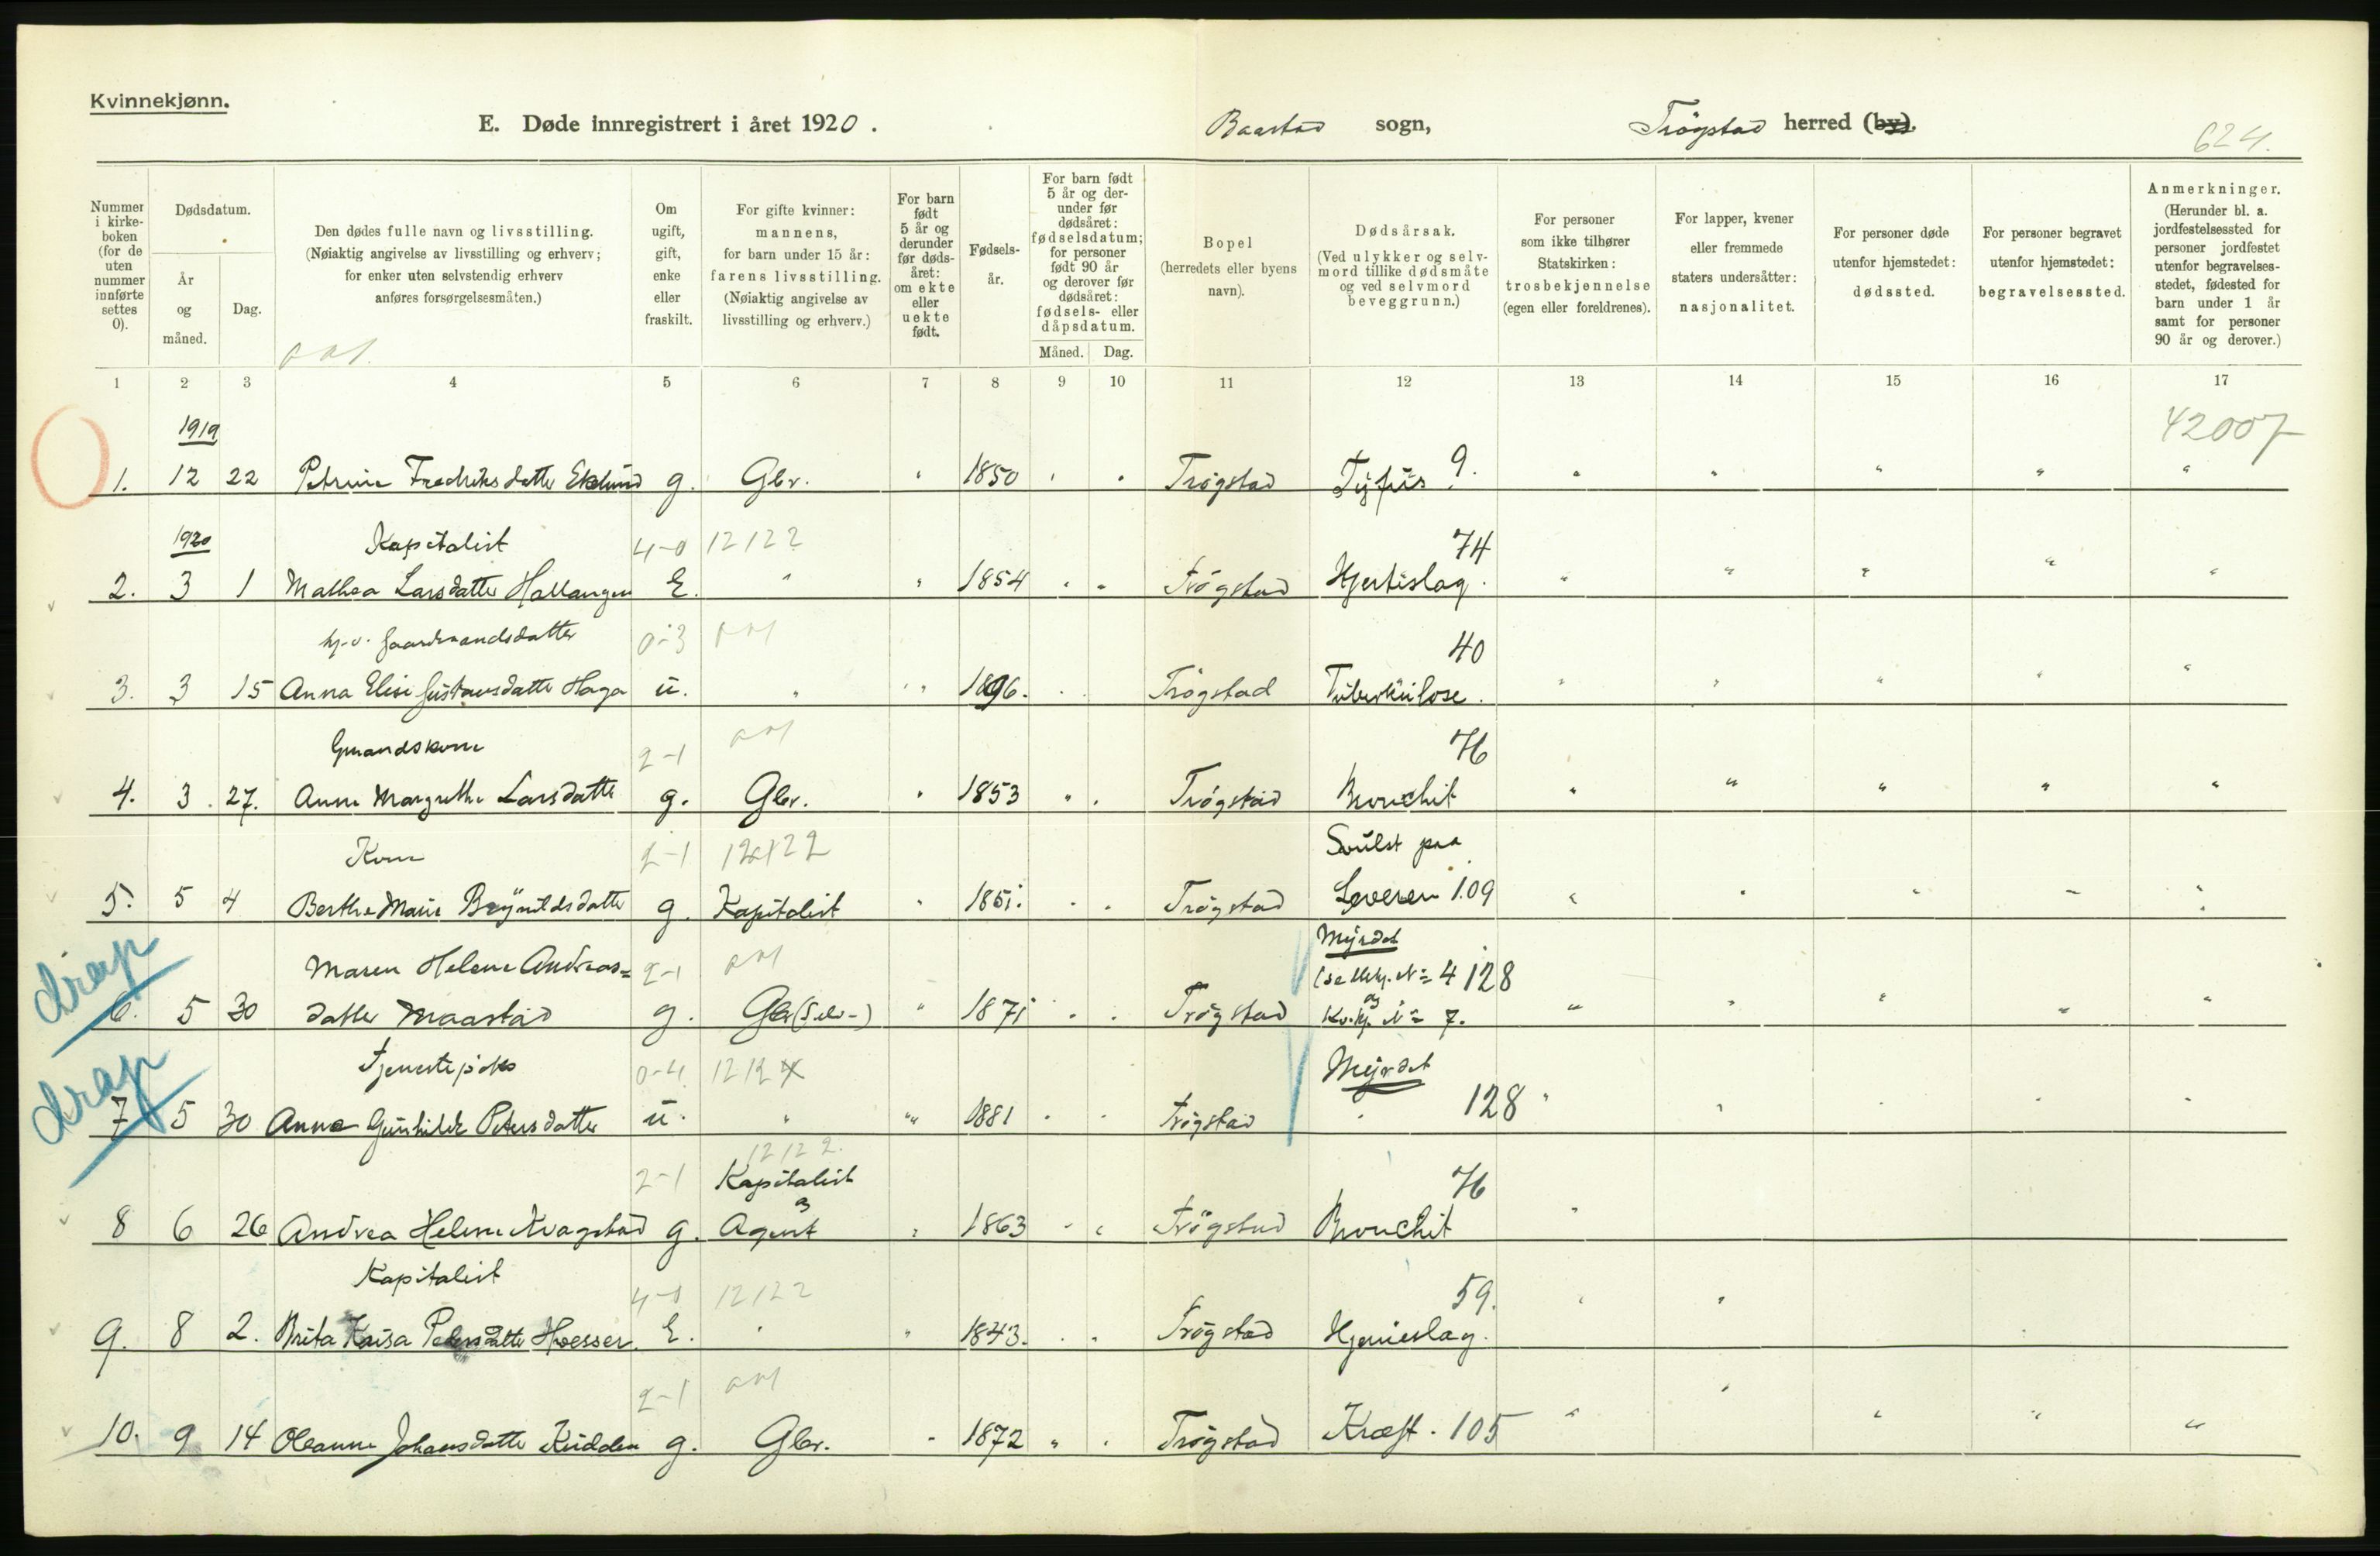 Kvinnekjønn.
E. Døde innregistrert i året 1920. Baastad sogn, Trögstad herred (by).
624.
Nummer i kirkeboken (for de uten nummer innførte settes 0).
Dødsdatum.
År og måned.
Dag.
Den dødes fulle navn og livsstilling. (Nøiaktig angivelse av livsstilling og erhverv; for enker uten selvstendig erhverv anføres forsørgelsesmåten.)
Om ugift, gift, enke eller fraskilt.
For gifte kvinner: mannens, for barn under 15 år: farens livsstilling. (Nøiaktig angivelse av livsstilling og erhverv.)
For barn født 5 år og derunder før dødsåret: om ekte eller uekte født.
Fødselsår.
For barn født 5 år og derunder før dødsåret: fødselsdatum; for personer født 90 år og derover før dødsåret: fødsels- eller dåpsdatum.
Måned. Dag.
Bopel (herredets eller byens navn).
Dødsårsak. (Ved ulykker og selvmord tillike dødsmåte og ved selvmord beveggrunn.)
For personer som ikke tilhører Statskirken: trosbekjennelse (egen eller foreldrenes).
For lapper, kvener eller fremmede staters undersåtter: nasjonalitet.
For personer døde utenfor hjemstedet: dødssted.
For personer begravet utenfor hjemstedet: begravelsessted.
Anmerkninger. (Herunder bl. a. jordfestelsessted for personer jordfestet utenfor begravelsesstedet, fødested for barn under 1 år samt for personer 90 år og derover.)
1 2 3 4 5 6 7 8 9 10 11 12 13 14 15 16 17
1919
42007
1. 12 22 Petrine Fredriksdatter Eklund g. Gbr. " 1850 " " Trögstad Tyfus 9. " " " " "
1920 Kapitalist 4-0 12122 74
2. 3 1 Mathea Larsdatter Hallangen E. " " 1854 " " Trögstad Hjertislag. " " " " "
hj.v. Gaardmandsdatter 0-3 40
3. 3 15 Anna Elise Gustavsdatter Haga u. " " 1896. Trögstad Tuberkulose. " " " " "
Gmandskone 2-1 76
4. 3. 27. Anne Margrethe Larsdatter g. Gbr. " 1853 " " Trögstad Bronchit " " " " "
Kone 2-1 12122 Svulst paa
5. 5 4 Berthe Marie Brynildsdatter g. Kapitalist " 1851. " " Trögstad Leveren 109 " " " " "
drap
Maren Helene Andreas= 2-1 Myrdet
(se Mkj. No 4 128
6. 5 30 datter Maastad g. Gbr (Selv-) " 1871 " " Trögstad og Kv.kj. No 7. " " " " "
drap
Tjenestepike 0-4 Myrdet
7 5 30 Anna Gunhilde Petersdatter u. " " 1881 " " Trögstad " 128 " " " " "
12122.
2-1 Kapitalist 76
8 6 26 Andrea Helene Kvagstad g. og Agent " 1863 " " Trögstad Bronchit "
Kapitalist 4-0 12122 59.
9. 8 2. Brita Kaisa Petersdatter Hoesser. E. " " 1843. " " Trögstad Hjerneslag. " "
2-1
10. 9 14 Oleanne Johansdatter Kudden g. Gbr. " 1872 " " Trögstad Kræft. 105 " " " " "